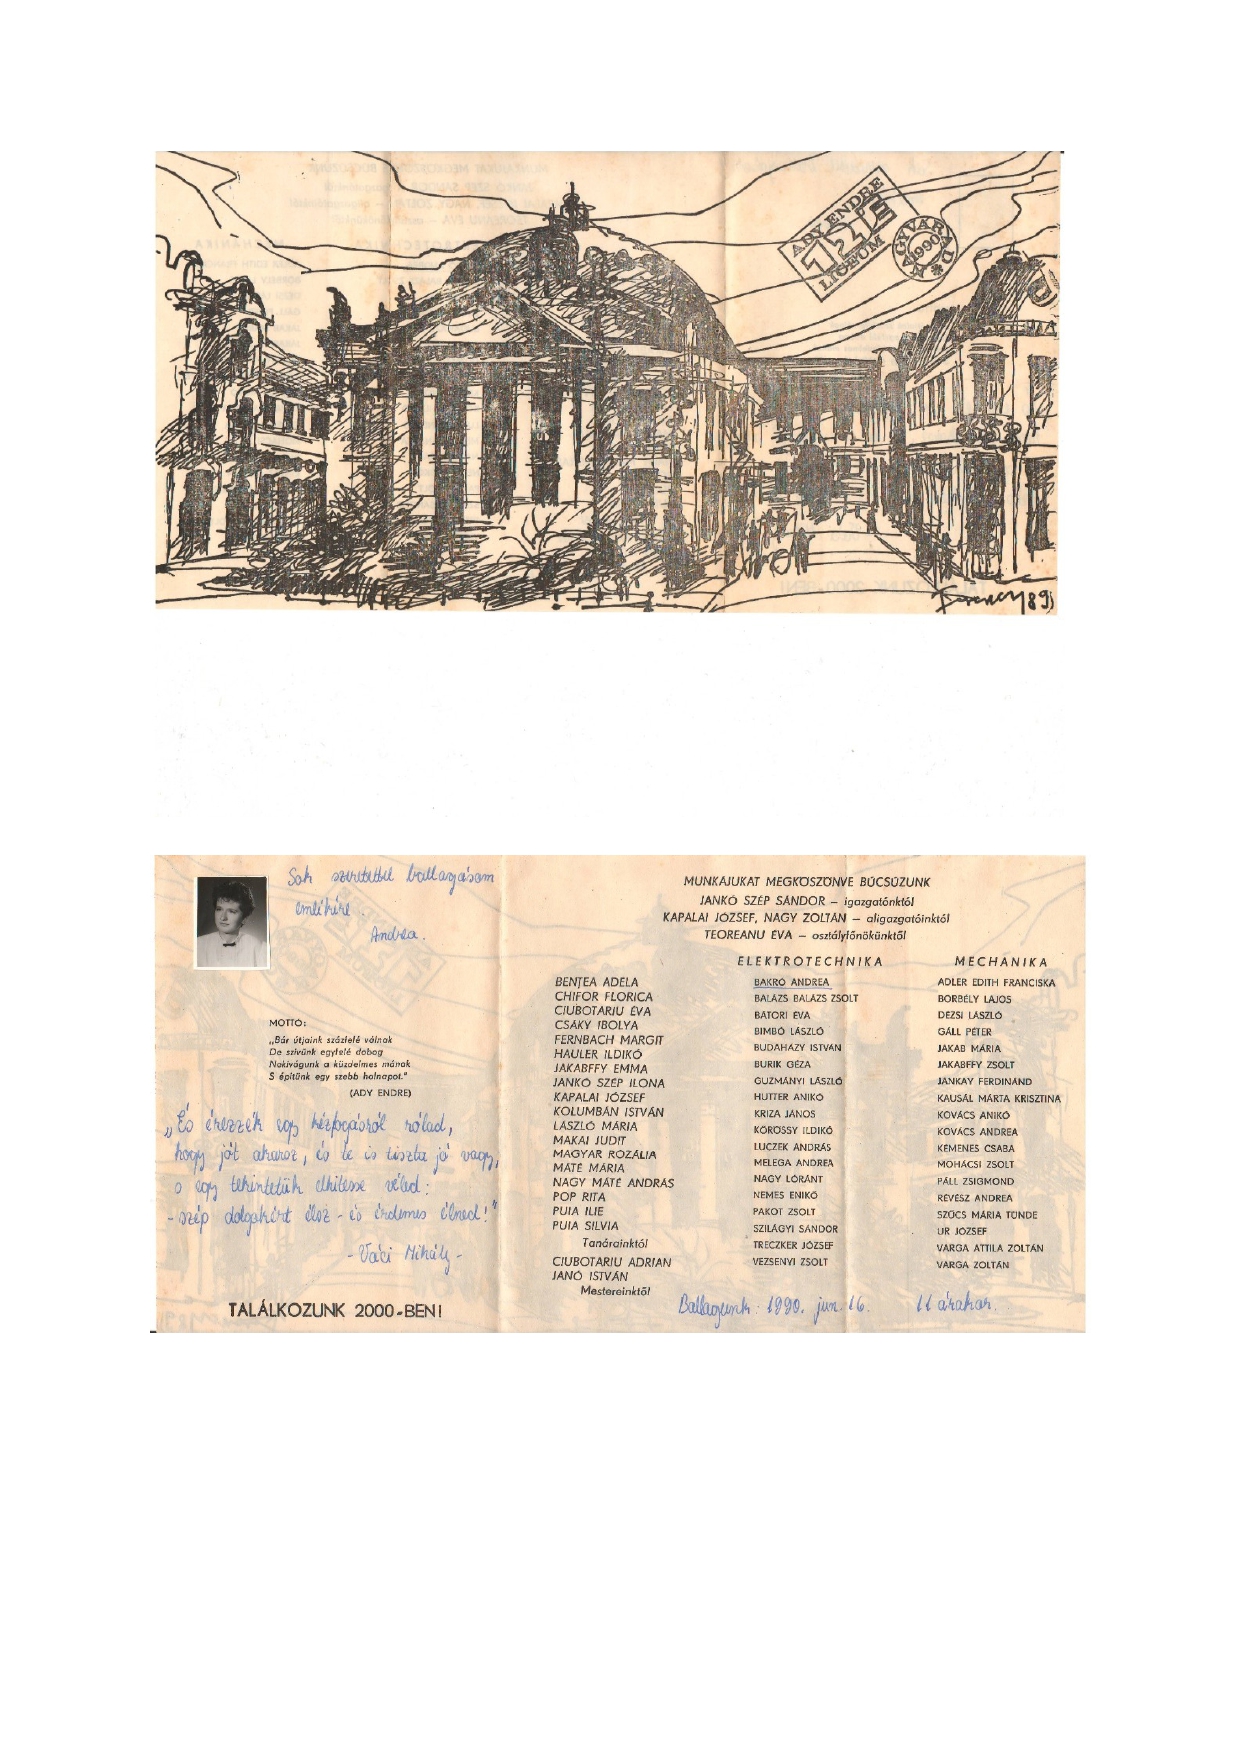 ADY ENDRE
12E
LICEUM
NAGYVÁRAD
1990
Ferenczy 89
Sok szeretettel ballagásom
emlékére.
Andrea.
MOTTÓ:
„Bár útjaink százfelé válnak
De szívünk egyfelé dobog
Nekivágunk a küzdelmes mának
S építünk egy szebb holnapot."
(ADY ENDRE)
„És érezzék egy kézfogásról rólad,
hogy jót akarsz, és te is tiszta jó vagy,
s egy tekintetük elhitesse véled:
- szép dolgokért élsz - és érdemes élned!"
- Váci Mihály -
TALÁLKOZUNK 2000-BEN!
MUNKAJUKAT MEGKÖSZÖNVE BÚCSÚZUNK
JANKÓ SZÉP SÁNDOR – igazgatónktól
KAPALAI JÓZSEF, NAGY ZOLTÁN – aligazgatóinktól
TEOREANU ÉVA – osztályfőnökünktől
BENȚEA ADELA
CHIFOR FLORICA
CIUBOTARIU ÉVA
CSÁKY IBOLYA
FERNBACH MARGIT
HAULER ILDIKÓ
JAKABFFY EMMA
JANKÓ SZÉP ILONA
KAPALAI JÓZSEF
KOLUMBÁN ISTVÁN
LÁSZLÓ MÁRIA
MAKAI JUDIT
MAGYAR ROZÁLIA
MÁTÉ MÁRIA
NAGY MÁTÉ ANDRÁS
POP RITA
PUIA ILIE
PUIA SILVIA
Tanárainktól
CIUBOTARIU ADRIAN
JANÓ ISTVÁN
Mestereinktől
ELEKTROTECHNIKA
BAKRÓ ANDREA
BALÁZS BALÁZS ZSOLT
BÁTORI ÉVA
BIMBÓ LÁSZLÓ
BUDAHÁZY ISTVÁN
BURIK GÉZA
GUZMÁNYI LÁSZLÓ
HUTTER ANIKÓ
KRIZA JÁNOS
KŐRÖSSY ILDIKÓ
LUCZEK ANDRÁS
MELEGA ANDREA
NAGY LÓRÁNT
NEMES ENIKŐ
PAKOT ZSOLT
SZILÁGYI SÁNDOR
TRECZKER JÓZSEF
VEZSENYI ZSOLT
MECHANIKA
ADLER EDITH FRANCISKA
BORBÉLY LAJOS
DÉZSI LÁSZLÓ
GÁLL PÉTER
JAKAB MÁRIA
JAKABFFY ZSOLT
JANKAY FERDINÁND
KAUSÁL MÁRTA KRISZTINA
KOVÁCS ANIKÓ
KOVÁCS ANDREA
KEMENES CSABA
MOHÁCSI ZSOLT
PÁLL ZSIGMOND
RÉVÉSZ ANDREA
SZŰCS MÁRIA TÜNDE
UR JÓZSEF
VARGA ATTILA ZOLTÁN
VARGA ZOLTÁN
Ballagunk: 1990. jun. 16. 11 órakor.